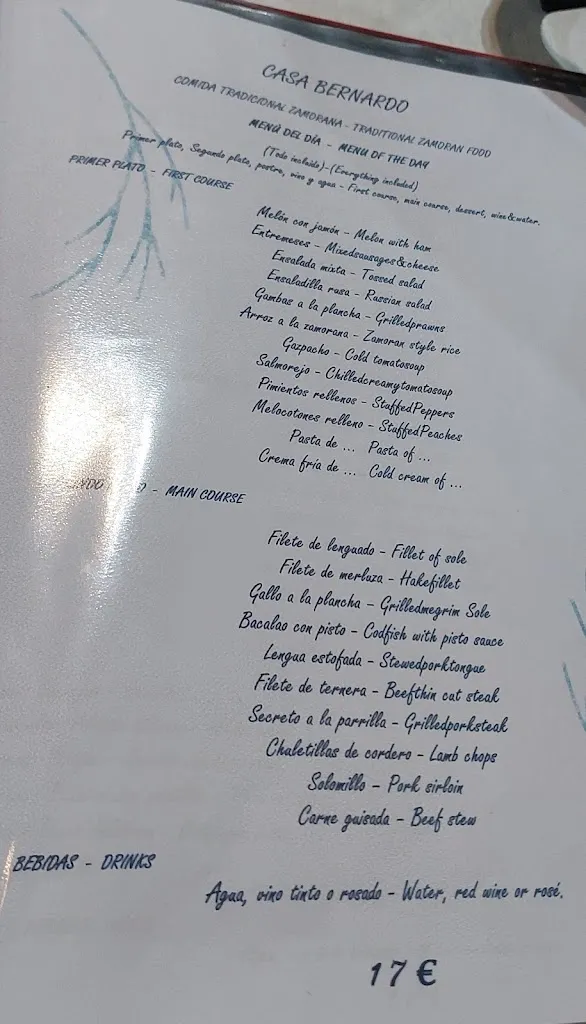 CASA BERNARDO
COMIDA TRADICIONAL ZAMORANA - TRADITIONAL ZAMORAN FOOD
MENÚ DEL DÍA - MENU OF THE DAY
(Todo incluido)-(Everything included)
Primer plato, Segundo plato, postre, vino y agua - First course, main course, dessert, wine&water.
PRIMER PLATO - FIRST COURSE
Melón con jamón - Melon with ham
Entremeses - Mixedsausages&cheese
Ensalada mixta - Tossed salad
Ensaladilla rusa - Russian salad
Gambas a la plancha - Grilledprawns
Arroz a la zamorana - Zamoran style rice
Gazpacho - Cold tomatosoup
Salmorejo - Chilledcreamytomatosoup
Pimientos rellenos - StuffedPeppers
Melocotones relleno - StuffedPeaches
Pasta de ... Pasta of ...
Crema fría de ... Cold cream of ...
- MAIN COURSE
Filete de lenguado - Fillet of sole
Filete de merluza - Hakefillet
Gallo a la plancha - Grilledmegrim Sole
Bacalao con pisto - Codfish with pisto sauce
Lengua estofada - Stewedporktongue
Filete de ternera - Beefthin cut steak
Secreto a la parrilla - Grilledporksteak
Chuletillas de cordero - Lamb chops
Solomillo - Pork sirloin
Carne guisada - Beef stew
BEBIDAS - DRINKS
Agua, vino tinto o rosado - Water, red wine or rosé.
17 €